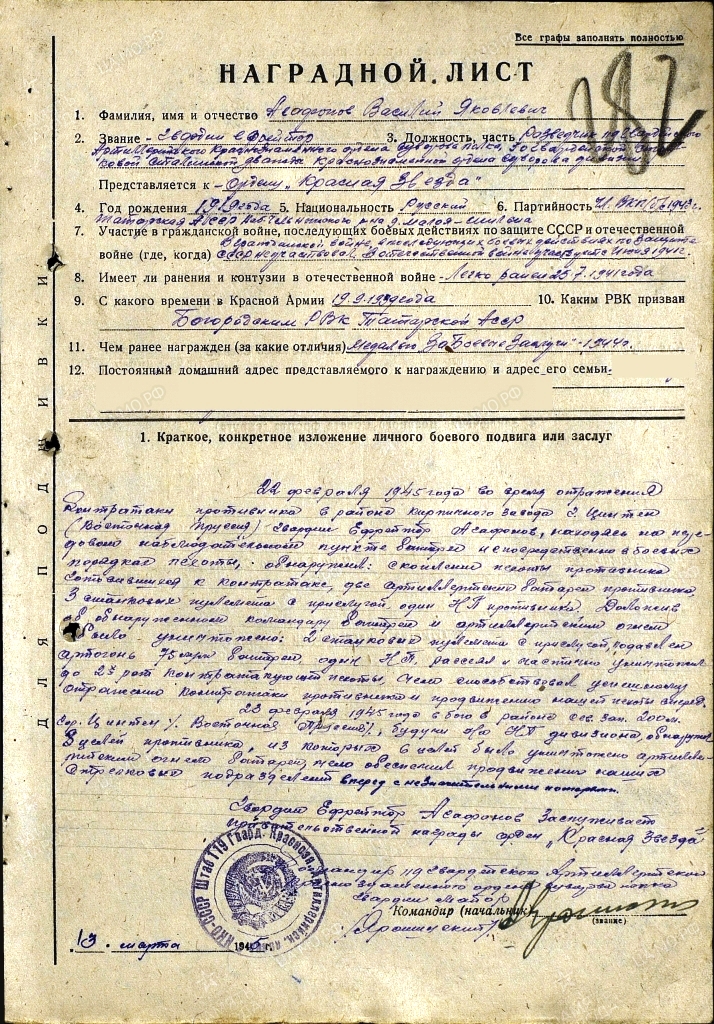 Все графы заполнять полностью
НАГРАДНОЙ ЛИСТ
1. Фамилия, имя и отчество Асафонов Василий Яковлевич
2. Звание - Гвардии Ефрейтор 3. Должность, часть Разведчик 119 Гвардейского
Артиллерийского Краснознаменного ордена Суворова полка,
Краснознаменной ордена Суворова дивизии.
Представляется к - Ордену "Красная Звезда"
4. Год рождения 1919 года 5. Национальность Русский 6. Партийность Чл. ВКП/б/с 1943 г.
Татарская АССР
7. Участие в гражданской войне, последующих боевых действиях по защите СССР и отечественной
В гражданской войне, в последующих боевых действиях по защите
войне (где, когда) СССР не участвовал. В отечественной войне участвует с Июня 1941 г.
8. Имеет ли ранения и контузии в отечественной войне - Легко ранен 25.7.1941 года
9. С какого времени в Красной Армии 19.9.1939 года 10. Каким РВК призван
Богородским РВК Татарской Асср
11. Чем ранее награжден (за какие отличия) Медалью "За Боевые Заслуги" - 1944 г.
12. Постоянный домашний адрес представляемого к награждению и адрес его семьи-
1. Краткое, конкретное изложение личного боевого подвига или заслуг
22 февраля 1945 года во время отражения
контратаки противника в районе кирпичного завода г. Цинтен
(Восточная Пруссия) гвардии Ефрейтор Асафонов, находясь на
наблюдательном пункте батареи непосредственно в боевых
порядках пехоты, обнаружил: скопление пехоты противника
готовившихся к контратаке, две артиллерийских батареи противника,
3 станковых пулемета с прислугой, один НП противника. Доложив
об обнаруженном командиру батареи и артиллерийским огнем
было уничтожено: 2 станковых пулемета с прислугой, подавлен
артогонь 75 м/м батареи, один НП, рассеял и частично уничтожил
до 2х рот контратакующей пехоты, чем способствовал успешному
отражению контратаки противника и продвижению нашей пехоты вперед.
23 февраля 1945 года в бою в районе сев. зап. 200 м.
гор. Цинтен /. Восточная Пруссия/, будучи на НП дивизиона, обнаружил
8 целей противника, из которых 2 целей было уничтожено артилле-
рийским огнем батареи, чем обеспечил продвижение наших
стрелковых подразделений вперед с незначительными потерями.
Гвардии Ефрейтор Асафонов Заслуживает
правительственной награды орден "Красная Звезда"
Командир 119 Гвардейского Артиллерийского
Краснознаменного ордена Суворова полка
Гвардии Майор
Командир (начальник)
(звание)
/Ярошинский/
13 марта 1945 г.
ДЛЯ ПОДШИВКИ
НКО-СССР Штаб 119 Гвард. Краснозн. Артиллерийск.